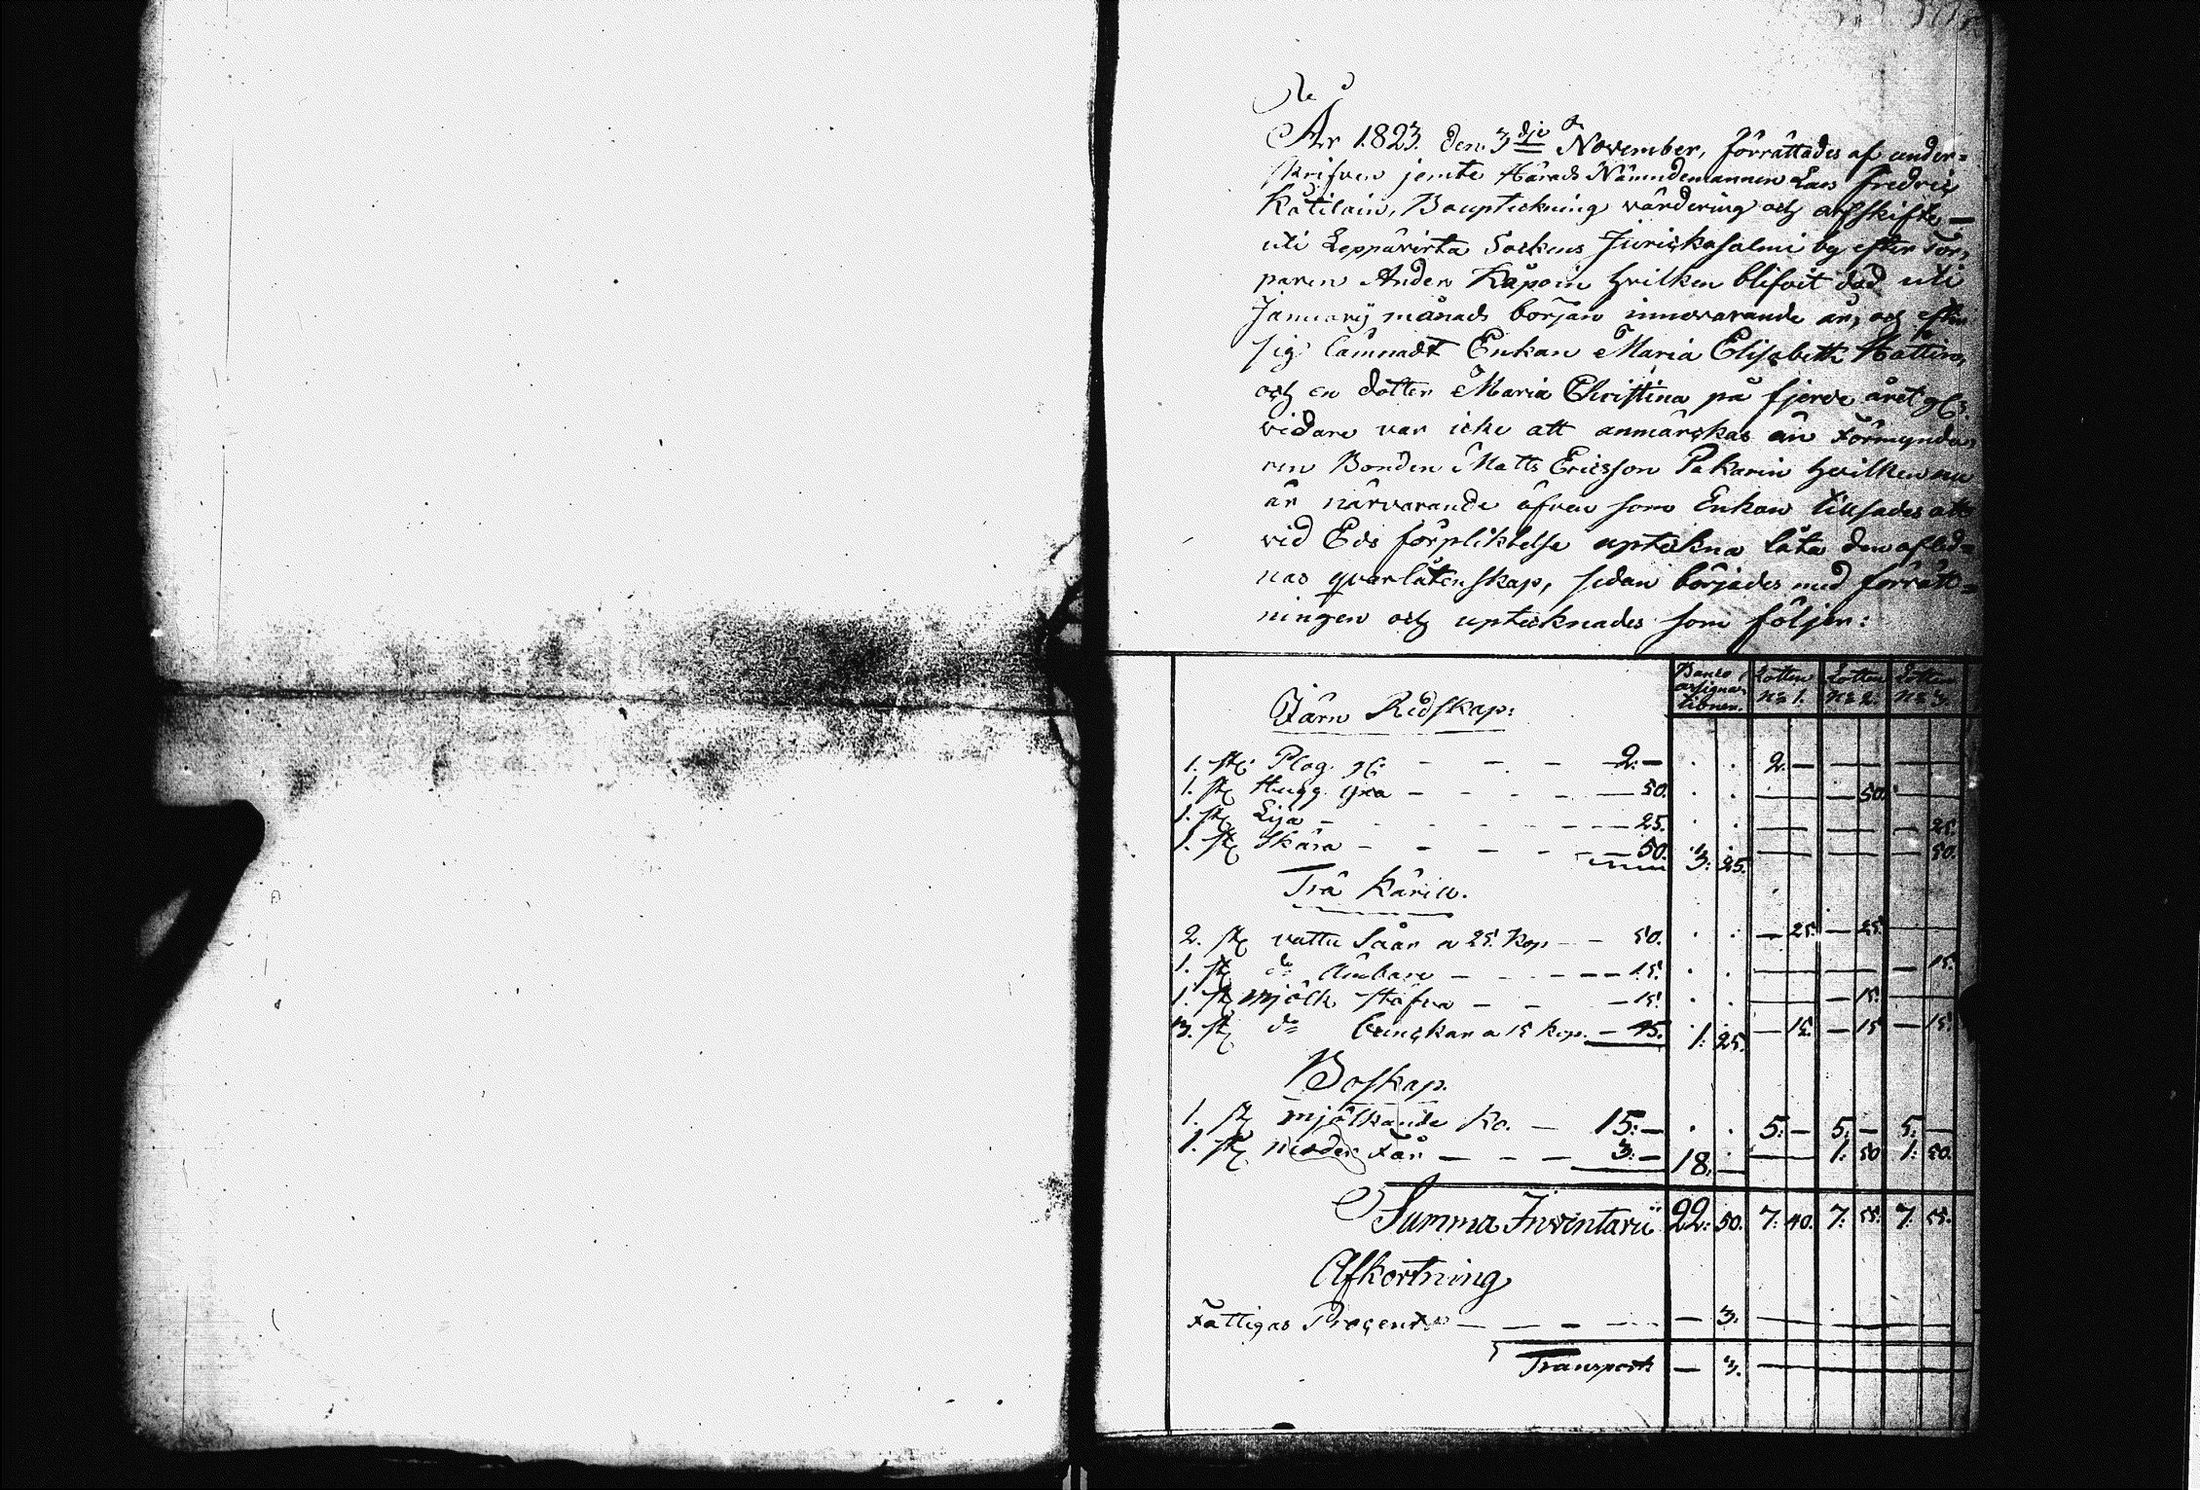 År 1823. den 3dje November, förrättades af under=
skrifven jemte Härads Nämndemannen Lars Fredric
Kotilain, Bouptekning värdering och arfskifte
uti Leppävirta Sockens Juriskasalmi by efter Tor,
paren Anders Käpoin hvilken blifvit död uti
Januarij månads början innevarande år, och efter
sig lämnadt Enkan Maria Elisabeth Hattin,
och en dotter Maria Christina på fjerde året gl:
vidare var icke att anmärckas än Förmynda,
ren Bonden Matts Ericsson Pakarin hvilken nu
är närvarande äfven som Enkan tillsades att
vid Eds förpliktelse uptekna låta den aflid=
nas qvarlåtenskap, sedan börjades med förrätt=
ningen och uptecknades som följer:
Banco assignationer. Lotten No 1. Lotten No 2. Lotten No 3.
Järn Redskap:
1. st: Plog gl: 2. — 2. —
1. st Hugg yxa 50. 50.
1. st Lija 25. 25.
1. st Skära 50. 3: 25. 50.
Trä Käril.
2. st vattu Såar a 25 kop 50. 25. 25.
1. st do Ämbare 15. 15.
1. st mjölk stäfva 15. 15.
3. st do a 15 kop. 45. 1: 25. 15. 15 15.
Boskap.
1. st mjölkande Ko. 15: — 5: — 5: — 5: —
1. st Får 3: — 18. — 1: 50 1: 50.
Summa Inventarii 22: 50. 7: 40. 7: 55. 7: 55.
Afkortning
Fattigas Procent 3.
Transport — 3.